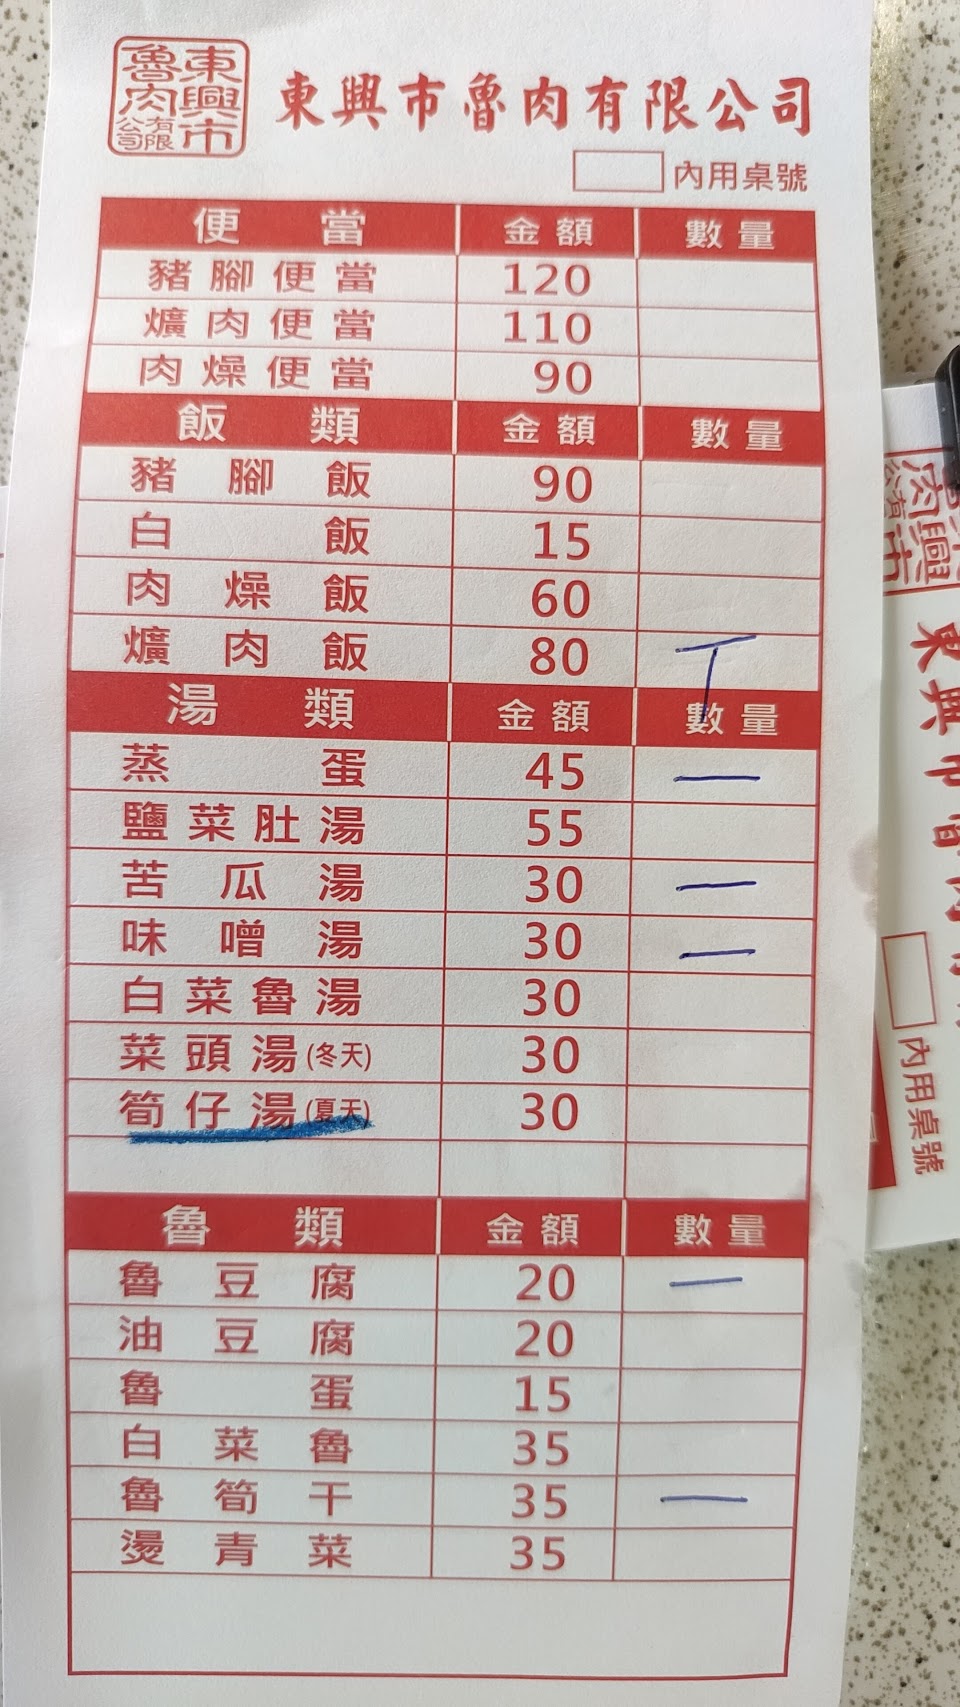 東興市
魯肉
有限
公司
東興市魯肉有限公司
內用桌號
便當 金額 數量
豬腳便當 120
爌肉便當 110
肉燥便當 90
飯類 金額 數量
豬腳飯 90
白飯 15
肉燥飯 60
爌肉飯 80 丅
湯類 金額 數量
蒸蛋 45 一
鹽菜肚湯 55
苦瓜湯 30 一
味噌湯 30 一
白菜魯湯 30
菜頭湯(冬天) 30
筍仔湯(夏天) 30
魯類 金額 數量
魯豆腐 20 一
油豆腐 20
魯蛋 15
白菜魯 35
魯筍干 35 一
燙青菜 35
肉興市
有
東興市
內用桌號